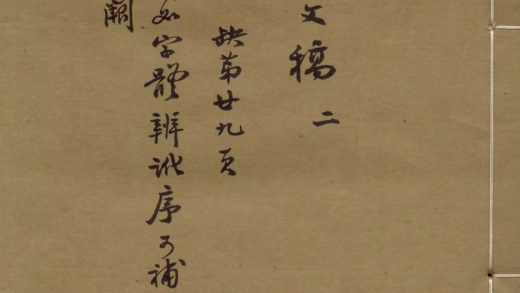 文稿 二
缺第廿九页
如字體辨訛序可補
闕